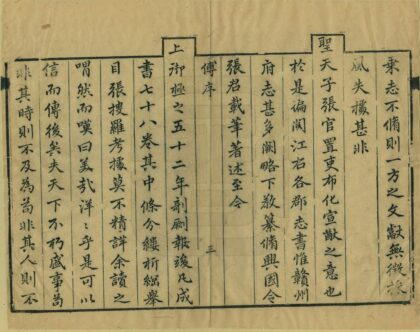 乘志不脩則一方之文獻無徵採
風失據甚非
聖天子張官置吏布化宣猷之意也
於是徧閱江右各郡志書惟贛州
府志甚多闕略下敎纂脩興國令
張君載筆著述至今
傅序
三
上御極之五十二年剞劂報竣凡成
書七十八卷其中條分縷析綱舉
目張搜羅考據莫不精詳余讀之
喟然而嘆曰美哉洋洋乎是可以
信而傳後矣夫天下不朽盛事苟
非其時則不及為苟非其人則不